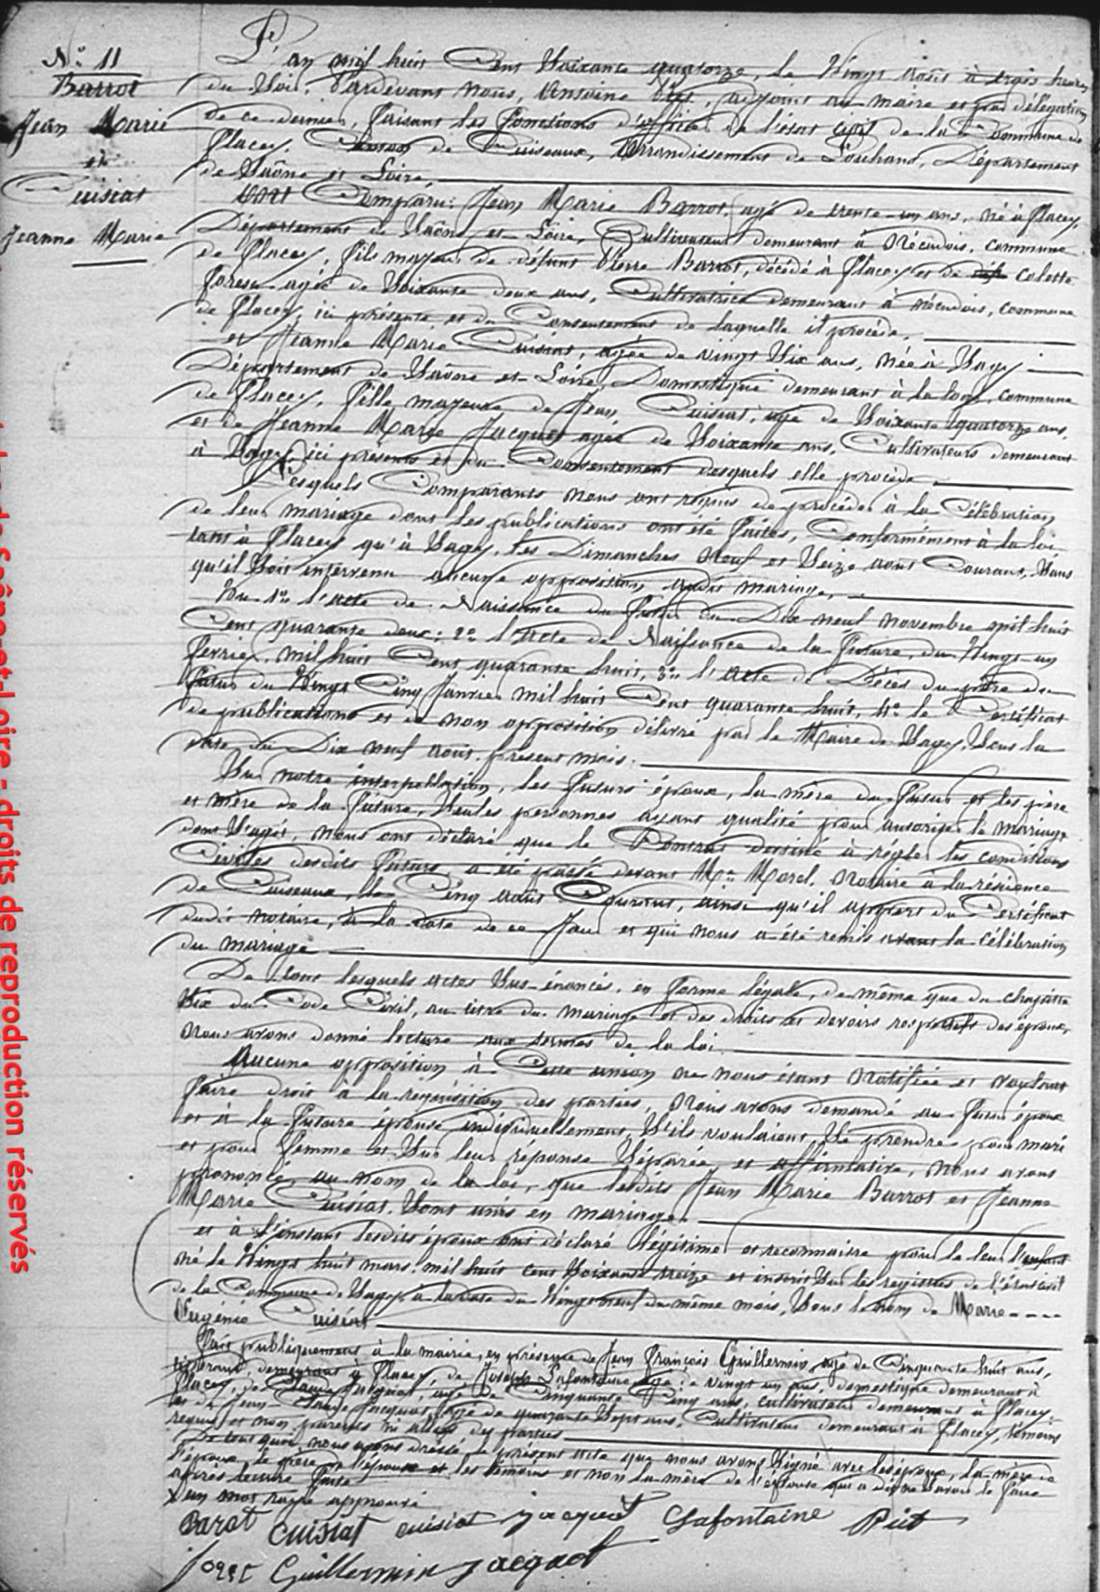 N° 11
Barrot
Jean Marie
et
Cuisiat
Jeanne Marie
L'an mil huit Cent Soixante quatorze, le Vingt août à trois heures
du Soir. Pardevant nous, Antoine Piet, adjoint au maire et par délégation
de ce dernier faisant les fonctions d'officier de l'état civil de la Commune de
Flacey, Canton de Cuiseaux, Arrondissement de Louhans, Département
de Saône et Loire
Sont Comparu: Jean Marie Barrot, agé de trente-un ans, né à Flacey,
Département de Saône et Loire, Cultivateur demeurant à commune
de Flacey, fils majeur de défunt Pierre Barrot, décédé à Flacey et de Colette
Forest agée de Soixante deux ans, Cultivatrice demeurant à commune
de Flacey, ici présente et du Consentement de laquelle il procède,
et Jeanne Marie Cuisiat, agée de vingt Six ans, née à Sagy
Département de Saône et Loire, Domestique demeurant à la commune
de Flacey, fille majeure de Jean Cuisiat, agé de Soixante quatorze ans,
et de Jeanne Marie Jacquet agée de Soixante ans, Cultivateurs demeurant
à Sagy, ici présents et du Consentement desquels elle procède
Lesquels Comparants nous ont requis de procéder à la Célébration
de leur mariage dont les publications ont été faites, Conformément à la loi,
tant à Flacey qu'à Sagy, les Dimanches Neuf et Seize août Courant, Sans
qu'il Soit intervenu aucune opposition audit mariage,
Vu 1° l'acte de Naissance du futur du Dix neuf novembre mil huit
Cent quarante deux; 2° l'acte de Naissance de la future, du Vingt-un
février mil huit Cent quarante huit, 3° l'acte de Décès du père du
futur du Vingt Cinq Janvier mil huit Cent quarante huit, 4° le Certificat
de publications et de non opposition délivré par le Maire de Sagy, Sous la
date du Dix neuf août présent mois.
Sur notre interpellation, les futurs époux, la mère du futur et les père
et mère de la future, Seules personnes ayant qualité pour autoriser le mariage
dont S'agit, nous ont déclaré que le Contrat destiné à régler les conditions
Civiles desdits futurs a été passé devant Me Morel, Notaire à la résidence
de Cuiseaux, le Cinq août Courant, ainsi qu'il appert du Certificat
dudit notaire, à la date de ce Jour et qui nous a été remis avant la célébration
du mariage
De tous lesquels actes Sus-énoncés, en forme légale, de même que du chapitre
Six du Code Civil, au titre du mariage et des droits et devoirs respectifs des époux,
Nous avons donné lecture aux termes de la loi
Aucune opposition à Cette union ne nous étant Notifiée et voulant
faire droit à la réquisition des parties, Nous avons demandé au futur époux
et à la future épouse individuellement, S'ils voulaient Se prendre pour mari
et pour femme et Sur leur réponse Séparée et affirmative, nous avons
prononcé, au nom de la loi, que lesdits Jean Marie Barrot et Jeanne
Marie Cuisiat Sont unis en mariage.
et à l'instant lesdits époux ont déclaré légitimer et reconnaitre pour le leur l'enfant
né le Vingt huit mars mil huit cent Soixante treize et inscrit Sur les registres de l'état civil
de la Commune de Sagy à la date du Vingt neuf du même mois, Sous le nom de Marie
Eugénie Cuisiat
Fait publiquement à la mairie, en présence de Jean François Guillermin, agé de Cinquante huit ans,
demeurant à Flacey, de Joseph Lafontaine agé de vingt un ans, domestique demeurant à
Flacey, de Jacquot, agé de Cinquante Cinq ans, cultivateur demeurant à Flacey
et de Jean-Claude Jacquot, agé de quarante Sept ans, Cultivateur demeurant à Flacey, témoins
requis et non parents ni alliés des parties
De tout quoi nous avons dressé le présent acte que nous avons Signé avec les époux, la mère de
l'époux, le père de l'épouse et les témoins et non la mère de l'épouse qui a déclaré ne savoir le faire
après lecture faite
un mot rayé approuvé
Barot Cuisiat cuisiat jacquot Lafontaine Piet
Forest Guillermin jacquot
droits de reproduction réservés